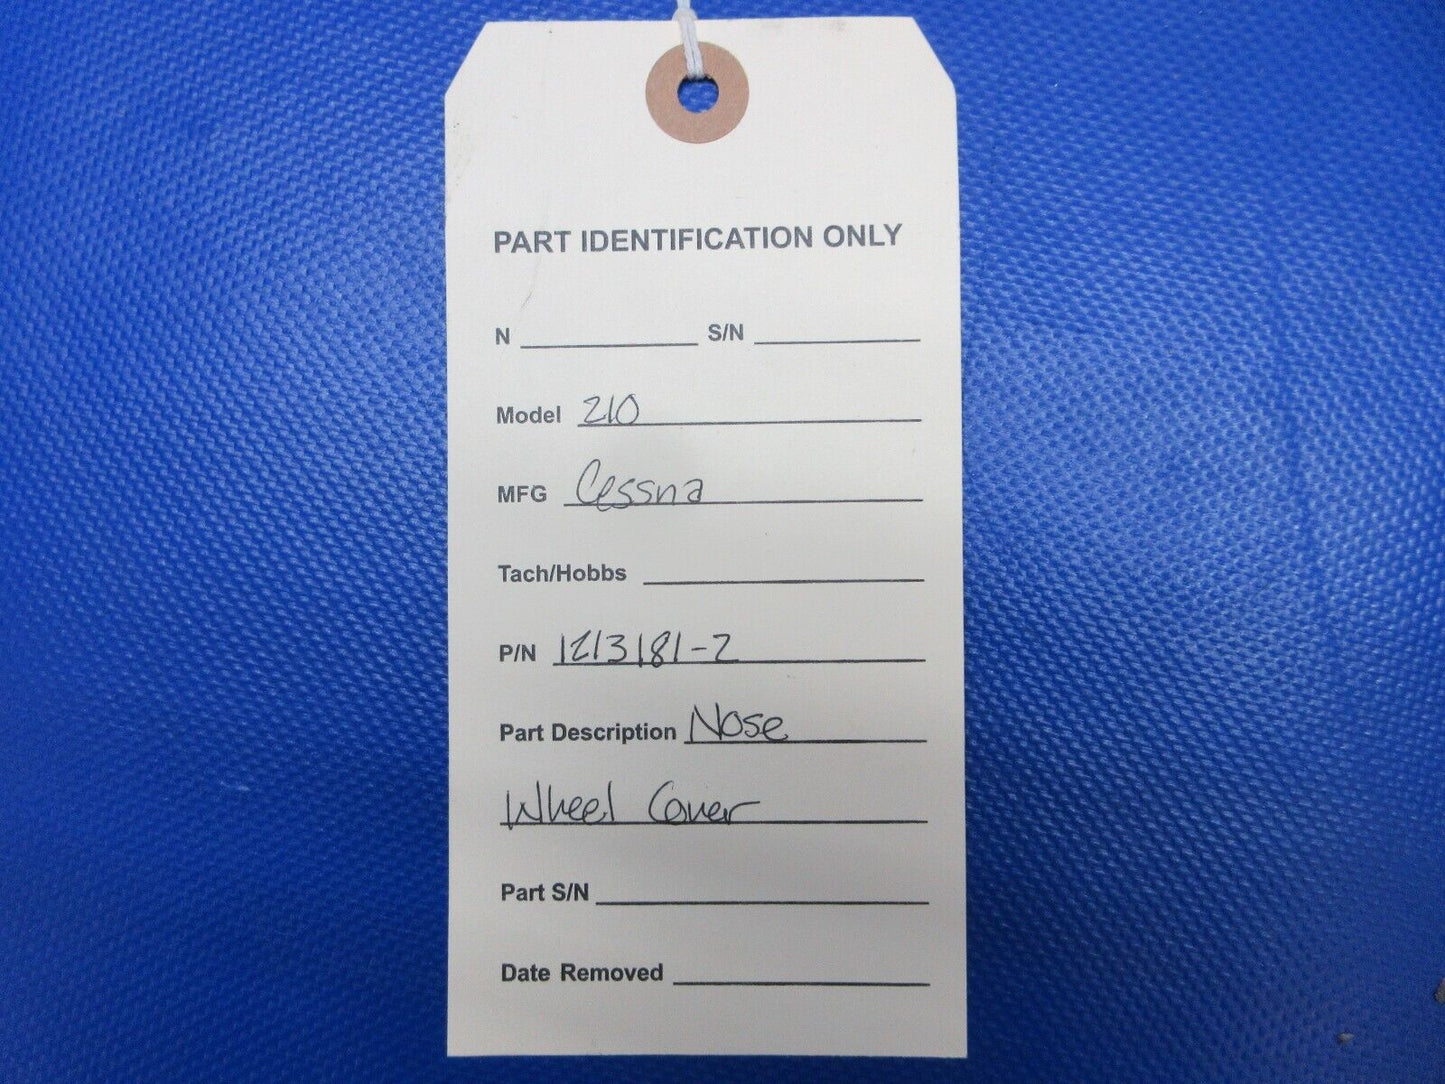 PART IDENTIFICATION ONLY
N S/N
Model 210
MFG Cessna
Tach/Hobbs
P/N 1213181-2
Part Description Nose
Wheel Cover
Part S/N
Date Removed